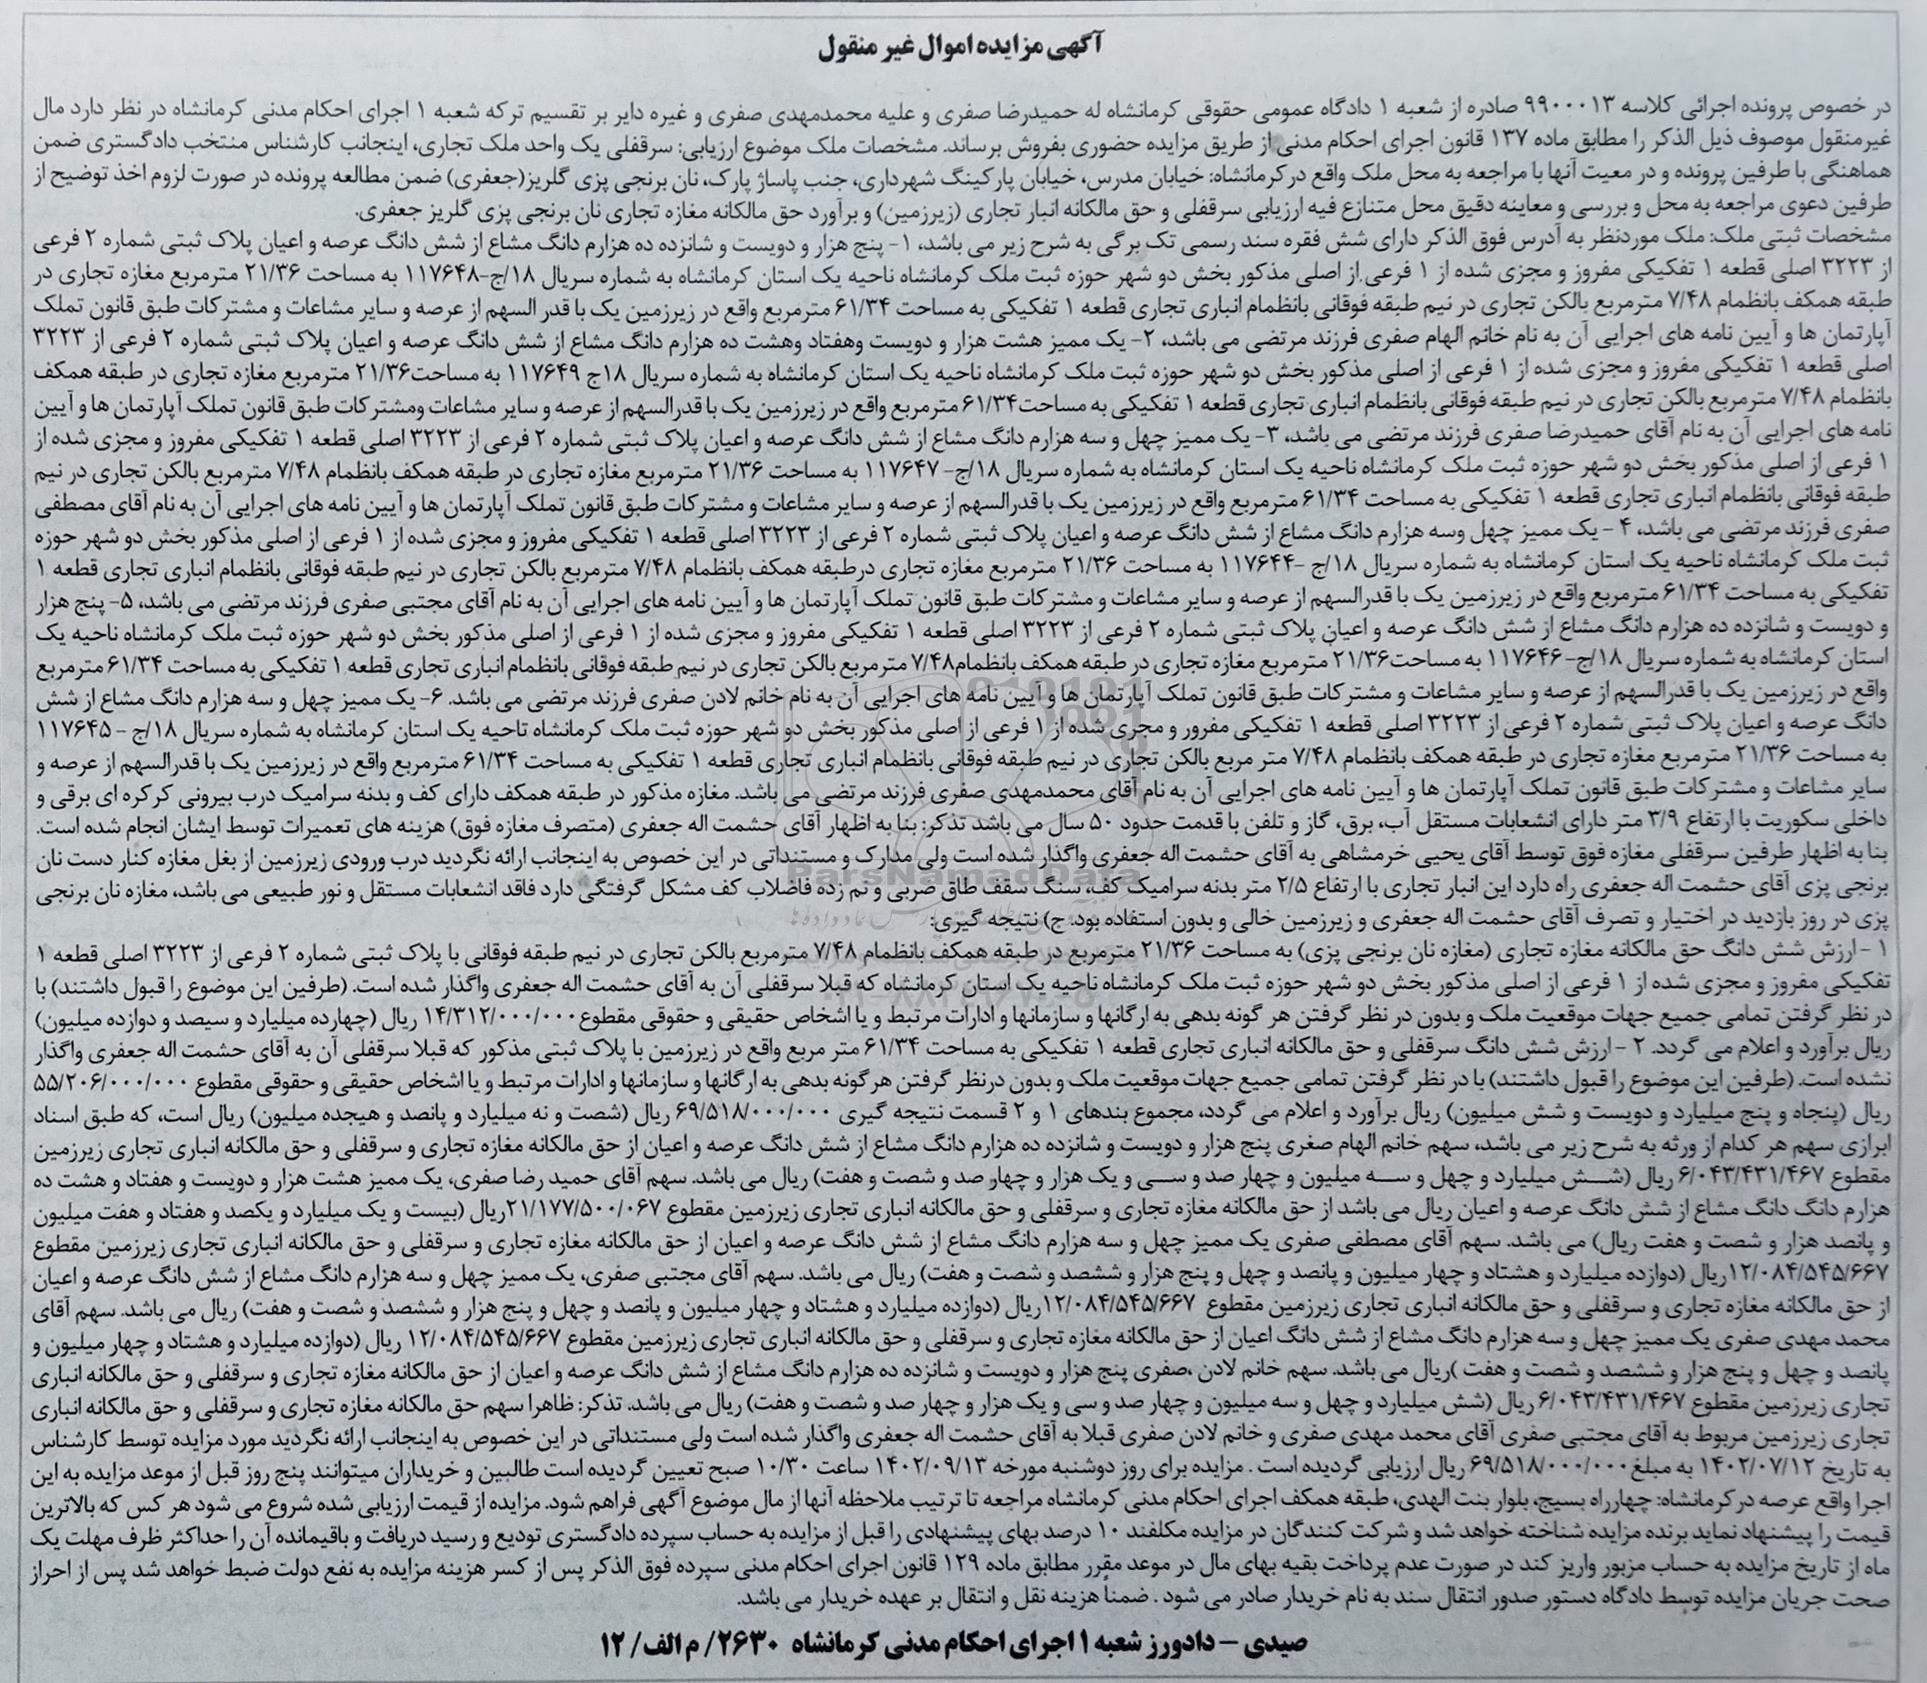 آگهی مزایده اموال غیر منقول
در خصوص پرونده اجرائی کلاسه ۹۹۰۰۰۱۳ صادره از شعبه ۱ دادگاه عمومی حقوقی کرمانشاه له حمیدرضا صفری و علیه محمدمهدی صفری و غیره دایر بر تقسیم ترکه شعبه ۱ اجرای احکام مدنی کرمانشاه در نظر دارد مال
غیرمنقول موصوف ذیل الذکر را مطابق ماده ۱۳۷ قانون اجرای احکام مدنی از طریق مزایده حضوری بفروش برساند. مشخصات ملک موضوع ارزیابی: سرقفلی یک واحد ملک تجاری، اینجانب کارشناس منتخب دادگستری ضمن
هماهنگی با طرفین پرونده و در معیت آنها با مراجعه به محل ملک واقع درکرمانشاه: خیابان مدرس، خیابان پارکینگ شهرداری، جنب پاساژ پارک، نان برنجی پزی گلریز(جعفری) ضمن مطالعه پرونده در صورت لزوم اخذ توضیح از
طرفین دعوی مراجعه به محل و بررسی و معاینه دقیق محل متنازع فیه ارزیابی سرقفلی و حق مالکانه انبار تجاری (زیرزمین) و برآورد حق مالکانه مغازه تجاری نان برنجی پزی گلریز جعفری.
مشخصات ثبتی ملک: ملک موردنظر به آدرس فوق الذکر دارای شش فقره سند رسمی تک برگی به شرح زیر می باشد، ۱- پنج هزار و دویست و شانزده ده هزارم دانگ مشاع از شش دانگ عرصه و اعیان پلاک ثبتی شماره ۲ فرعی
از ۳۲۲۳ اصلی قطعه ۱ تفکیکی مفروز و مجزی شده از ۱ فرعی از اصلی مذکور بخش دو شهر حوزه ثبت ملک کرمانشاه ناحیه یک استان کرمانشاه به شماره سریال ۱۸/ج-۱۱۷۶۴۸ به مساحت ۲۱/۳۶ مترمربع مغازه تجاری در
طبقه همکف بانظمام ۷/۴۸ مترمربع بالکن تجاری در نیم طبقه فوقانی بانظمام انباری تجاری قطعه ۱ تفکیکی به مساحت ۶۱/۳۴ مترمربع واقع در زیرزمین یک با قدر السهم از عرصه و سایر مشاعات و مشترکات طبق قانون تملک
آپارتمان ها و آیین نامه های اجرایی آن به نام خانم الهام صفری فرزند مرتضی می باشد، ۲- یک ممیز هشت هزار و دویست وهفتاد وهشت ده هزارم دانگ مشاع از شش دانگ عرصه و اعیان پلاک ثبتی شماره ۲ فرعی از ۳۲۲۳
اصلی قطعه ۱ تفکیکی مفروز و مجزی شده از ۱ فرعی از اصلی مذکور بخش دو شهر حوزه ثبت ملک کرمانشاه ناحیه یک استان کرمانشاه به شماره سریال ۱۸ج ۱۱۷۶۴۹ به مساحت۲۱/۳۶ مترمربع مغازه تجاری در طبقه همکف
بانظمام ۷/۴۸ مترمربع بالکن تجاری در نیم طبقه فوقانی بانظمام انباری تجاری قطعه ۱ تفکیکی به مساحت۶۱/۳۴ مترمربع واقع در زیرزمین یک با قدرالسهم از عرصه و سایر مشاعات ومشترکات طبق قانون تملک آپارتمان ها و آیین
نامه های اجرایی آن به نام آقای حمیدرضا صفری فرزند مرتضی می باشد، ۳- یک ممیز چهل و سه هزارم دانگ مشاع از شش دانگ عرصه و اعیان پلاک ثبتی شماره ۲ فرعی از ۳۲۲۳ اصلی قطعه ۱ تفکیکی مفروز و مجزی شده از
۱ فرعی از اصلی مذکور بخش دو شهر حوزه ثبت ملک کرمانشاه ناحیه یک استان کرمانشاه به شماره سریال ۱۸/ج- ۱۱۷۶۴۷ به مساحت ۲۱/۳۶ مترمربع مغازه تجاری در طبقه همکف بانظمام ۷/۴۸ مترمربع بالکن تجاری در نیم
طبقه فوقانی بانظمام انباری تجاری قطعه ۱ تفکیکی به مساحت ۶۱/۳۴ مترمربع واقع در زیرزمین یک با قدرالسهم از عرصه و سایر مشاعات و مشترکات طبق قانون تملک آپارتمان ها و آیین نامه های اجرایی آن به نام آقای مصطفی
صفری فرزند مرتضی می باشد، ۴ - یک ممیز چهل وسه هزارم دانگ مشاع از شش دانگ عرصه و اعیان پلاک ثبتی شماره ۲ فرعی از ۳۲۲۳ اصلی قطعه ۱ تفکیکی مفروز و مجزی شده از ۱ فرعی از اصلی مذکور بخش دو شهر حوزه
ثبت ملک کرمانشاه ناحیه یک استان کرمانشاه به شماره سریال ۱۸/ج -۱۱۷۶۴۴ به مساحت ۲۱/۳۶ مترمربع مغازه تجاری درطبقه همکف بانظمام ۷/۴۸ مترمربع بالکن تجاری در نیم طبقه فوقانی بانظمام انباری تجاری قطعه ۱
تفکیکی به مساحت ۶۱/۳۴ مترمربع واقع در زیرزمین یک با قدرالسهم از عرصه و سایر مشاعات و مشترکات طبق قانون تملک آپارتمان ها و آیین نامه های اجرایی آن به نام آقای مجتبی صفری فرزند مرتضی می باشد، ۵- پنج هزار
و دویست و شانزده ده هزارم دانگ مشاع از شش دانگ عرصه و اعیان پلاک ثبتی شماره ۲ فرعی از ۳۲۲۳ اصلی قطعه ۱ تفکیکی مفروز و مجزی شده از ۱ فرعی از اصلی مذکور بخش دو شهر حوزه ثبت ملک کرمانشاه ناحیه یک
استان کرمانشاه به شماره سریال ۱۸/ج- ۱۱۷۶۴۶ به مساحت۲۱/۳۶ مترمربع مغازه تجاری در طبقه همکف بانظمام۷/۴۸ مترمربع بالکن تجاری در نیم طبقه فوقانی بانظمام انباری تجاری قطعه ۱ تفکیکی به مساحت ۶۱/۳۴ مترمربع
واقع در زیرزمین یک با قدرالسهم از عرصه و سایر مشاعات و مشترکات طبق قانون تملک آپارتمان ها و آیین نامه های اجرایی آن به نام خانم لادن صفری فرزند مرتضی می باشد. ۶- یک ممیز چهل و سه هزارم دانگ مشاع از شش
دانگ عرصه و اعیان پلاک ثبتی شماره ۲ فرعی از ۳۲۲۳ اصلی قطعه ۱ تفکیکی مفرور و مجزی شده از ۱ فرعی از اصلی مذکور بخش دو شهر حوزه ثبت ملک کرمانشاه تاحیه یک استان کرمانشاه به شماره سریال ۱۸/ج - ۱۱۷۶۴۵
به مساحت ۲۱/۳۶ مترمربع مغازه تجاری در طبقه همکف بانظمام ۷/۴۸ متر مربع بالکن تجاری در نیم طبقه فوقانی بانظمام انباری تجاری قطعه ۱ تفکیکی به مساحت ۶۱/۳۴ مترمربع واقع در زیرزمین یک با قدرالسهم از عرصه و
سایر مشاعات و مشترکات طبق قانون تملک آپارتمان ها و آیین نامه های اجرایی آن به نام آقای محمدمهدی صفری فرزند مرتضی می باشد. مغازه مذکور در طبقه همکف دارای کف و بدنه سرامیک درب بیرونی کرکره ای برقی و
داخلی سکوریت با ارتفاع ۳/۹ متر دارای انشعابات مستقل آب، برق، گاز و تلفن با قدمت حدود ۵۰ سال می باشد تذکر: بنا به اظهار آقای حشمت اله جعفری (متصرف مغازه فوق) هزینه های تعمیرات توسط ایشان انجام شده است.
بنا به اظهار طرفین سرقفلی مغازه فوق توسط آقای یحیی خرمشاهی به آقای حشمت اله جعفری واگذار شده است ولی مدارک و مستنداتی در این خصوص به اینجانب ارائه نگردید درب ورودی زیرزمین از بغل مغازه کنار دست نان
برنجی پزی آقای حشمت اله جعفری راه دارد این انبار تجاری با ارتفاع ۲/۵ متر بدنه سرامیک کف، سنگ سقف طاق ضربی و نم زده فاضلاب کف مشکل گرفتگی دارد فاقد انشعابات مستقل و نور طبیعی می باشد، مغازه نان برنجی
پزی در روز بازدید در اختیار و تصرف آقای حشمت اله جعفری و زیرزمین خالی و بدون استفاده بود. ج) نتیجه گیری:
۱ - ارزش شش دانگ حق مالکانه مغازه تجاری (مغازه نان برنجی پزی) به مساحت ۲۱/۳۶ مترمربع در طبقه همکف بانظمام ۷/۴۸ مترمربع بالکن تجاری در نیم طبقه فوقانی با پلاک ثبتی شماره ۲ فرعی از ۳۲۲۳ اصلی قطعه ۱
تفکیکی مفروز و مجزی شده از ۱ فرعی از اصلی مذکور بخش دو شهر حوزه ثبت ملک کرمانشاه ناحیه یک استان کرمانشاه که قبلا سرقفلی آن به آقای حشمت اله جعفری واگذار شده است. (طرفین این موضوع را قبول داشتند) با
در نظر گرفتن تمامی جمیع جهات موقعیت ملک و بدون در نظر گرفتن هر گونه بدهی به ارگانها و سازمانها و ادارات مرتبط و یا اشخاص حقیقی و حقوقی مقطوع۱۴/۳۱۲/۰۰۰/۰۰۰ ریال (چهارده میلیارد و سیصد و دوازده میلیون)
ریال برآورد و اعلام می گردد. ۲ - ارزش شش دانگ سرقفلی و حق مالکانه انباری تجاری قطعه ۱ تفکیکی به مساحت ۶۱/۳۴ متر مربع واقع در زیرزمین با پلاک ثبتی مذکور که قبلا سرقفلی آن به آقای حشمت اله جعفری واگذار
نشده است. (طرفین این موضوع را قبول داشتند) با در نظر گرفتن تمامی جمیع جهات موقعیت ملک و بدون درنظر گرفتن هرگونه بدهی به ارگانها و سازمانها و ادارات مرتبط و یا اشخاص حقیقی و حقوقی مقطوع ۵۵/۲۰۶/۰۰۰/۰۰۰
ریال (پنجاه و پنج میلیارد و دویست و شش میلیون) ریال برآورد و اعلام می گردد، مجموع بندهای ۱ و ۲ قسمت نتیجه گیری ۶۹/۵۱۸/۰۰۰/۰۰۰ ریال (شصت و نه میلیارد و پانصد و هیجده میلیون) ریال است، که طبق اسناد
ابرازی سهم هر کدام از ورثه به شرح زیر می باشد، سهم خانم الهام صغری پنج هزار و دویست و شانزده ده هزارم دانگ مشاع از شش دانگ عرصه و اعیان از حق مالکانه مغازه تجاری و سرقفلی و حق مالکانه انباری تجاری زیرزمین
مقطوع ۶/۰۴۳/۴۳۱/۴۶۷ ریال (شش میلیارد و چهل و سه میلیون و چهار صد و سی و یک هزار و چهار صد و شصت و هفت) ریال می باشد. سهم آقای حمید رضا صفری، یک ممیز هشت هزار و دویست و هفتاد و هشت ده
هزارم دانگ دانگ مشاع از شش دانگ عرصه و اعیان ریال می باشد از حق مالکانه مغازه تجاری و سرقفلی و حق مالکانه انباری تجاری زیرزمین مقطوع ۲۱/۱۷۷/۵۰۰/۰۶۷ریال (بیست و یک میلیارد و یکصد و هفتاد و هفت میلیون
و پانصد هزار و شصت و هفت ریال) می باشد. سهم آقای مصطفی صفری یک ممیز چهل و سه هزارم دانگ مشاع از شش دانگ عرصه و اعیان از حق مالکانه مغازه تجاری و سرقفلی و حق مالکانه انباری تجاری زیرزمین مقطوع
۱۲/۰۸۴/۵۴۵/۶۶۷ریال (دوازده میلیارد و هشتاد و چهار میلیون و پانصد و چهل و پنج هزار و ششصد و شصت و هفت) ریال می باشد. سهم آقای مجتبی صفری، یک ممیز چهل و سه هزارم دانگ مشاع از شش دانگ عرصه و اعیان
از حق مالکانه مغازه تجاری و سرقفلی و حق مالکانه انباری تجاری زیرزمین مقطوع ۱۲/۰۸۴/۵۴۵/۶۶۷ریال (دوازده میلیارد و هشتاد و چهار میلیون و پانصد و چهل و پنج هزار و ششصد و شصت و هفت) ریال می باشد. سهم آقای
محمد مهدی صفری یک ممیز چهل و سه هزارم دانگ مشاع از شش دانگ اعیان از حق مالکانه مغازه تجاری و سرقفلی و حق مالکانه انباری تجاری زیرزمین مقطوع ۱۲/۰۸۴/۵۴۵/۶۶۷ ریال (دوازده میلیارد و هشتاد و چهار میلیون و
پانصد و چهل و پنج هزار و ششصد و شصت و هفت )ریال می باشد. سهم خانم لادن ،صفری پنج هزار و دویست و شانزده ده هزارم دانگ مشاع از شش دانگ عرصه و اعیان از حق مالکانه مغازه تجاری و سرقفلی و حق مالکانه انباری
تجاری زیرزمین مقطوع ۶/۰۴۳/۴۳۱/۴۶۷ ریال (شش میلیارد و چهل و سه میلیون و چهار صد و سی و یک هزار و چهار صد و شصت و هفت) ریال می باشد. تذکر: ظاهرا سهم حق مالکانه مغازه تجاری و سرقفلی و حق مالکانه انباری
تجاری زیرزمین مربوط به آقای مجتبی صفری آقای محمد مهدی صفری و خانم لادن صفری قبلا به آقای حشمت اله جعفری واگذار شده است ولی مستنداتی در این خصوص به اینجانب ارائه نگردید مورد مزایده توسط کارشناس
به تاریخ ۱۴۰۲/۰۷/۱۲ به مبلغ۶۹/۵۱۸/۰۰۰/۰۰۰ ریال ارزیابی گردیده است . مزایده برای روز دوشنبه مورخه ۱۴۰۲/۰۹/۱۳ ساعت ۱۰/۳۰ صبح تعیین گردیده است طالبین و خریداران میتوانند پنج روز قبل از موعد مزایده به این
اجرا واقع عرصه درکرمانشاه: چهارراه بسیج، بلوار بنت الهدی، طبقه همکف اجرای احکام مدنی کرمانشاه مراجعه تا ترتیب ملاحظه آنها از مال موضوع آگهی فراهم شود. مزایده از قیمت ارزیابی شده شروع می شود هر کس که بالاترین
قیمت را پیشنهاد نماید برنده مزایده شناخته خواهد شد و شرکت کنندگان در مزایده مکلفند ۱۰ درصد بهای پیشنهادی را قبل از مزایده به حساب سپرده دادگستری تودیع و رسید دریافت و باقیمانده آن را حداکثر ظرف مهلت یک
ماه از تاریخ مزایده به حساب مزبور واریز کند در صورت عدم پرداخت بقیه بهای مال در موعد مقرر مطابق ماده ۱۲۹ قانون اجرای احکام مدنی سپرده فوق الذکر پس از کسر هزینه مزایده به نفع دولت ضبط خواهد شد پس از احراز
صحت جریان مزایده توسط دادگاه دستور صدور انتقال سند به نام خریدار صادر می شود . ضمناً هزینه نقل و انتقال بر عهده خریدار می باشد.
صیدی - دادورز شعبه ۱ اجرای احکام مدنی کرمانشاه ۲۶۳۰/ م الف/ ۱۲
ParsNamadData